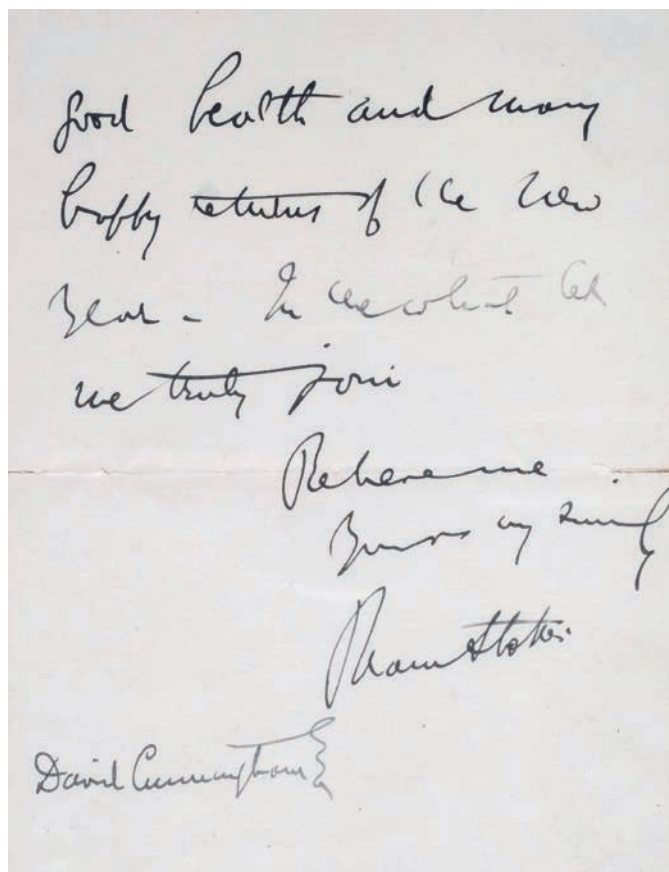 good health and many
happy returns of the New
Year - In the which let
me truly join
Believe me
Yours very sincerely
Bram Stoker
David Cunningham Esq